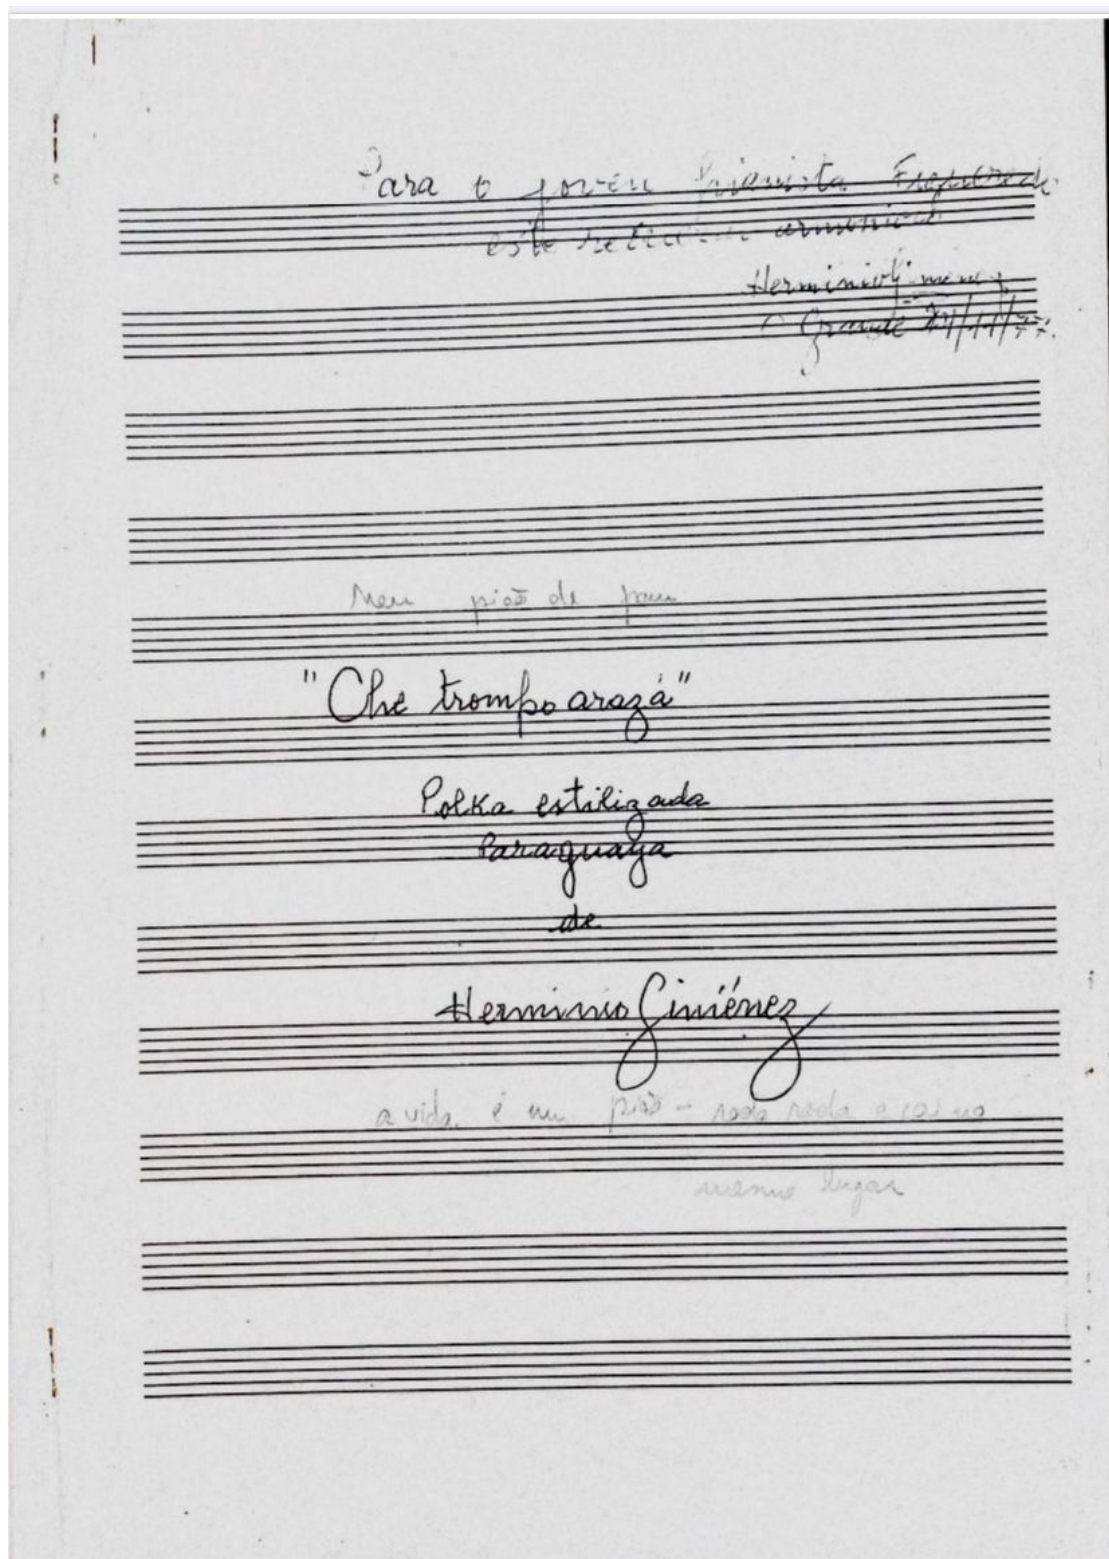 Para o joven pianista Figueredo
este armonico
Herminio Gimenez
C Grande 24/11/77.
Meu pião de pau
"Che trompo arazá"
Polka estilizada
Paraguaya
de
Herminio Giménez
a vida é um pião - roda roda e cai no
mesmo lugar